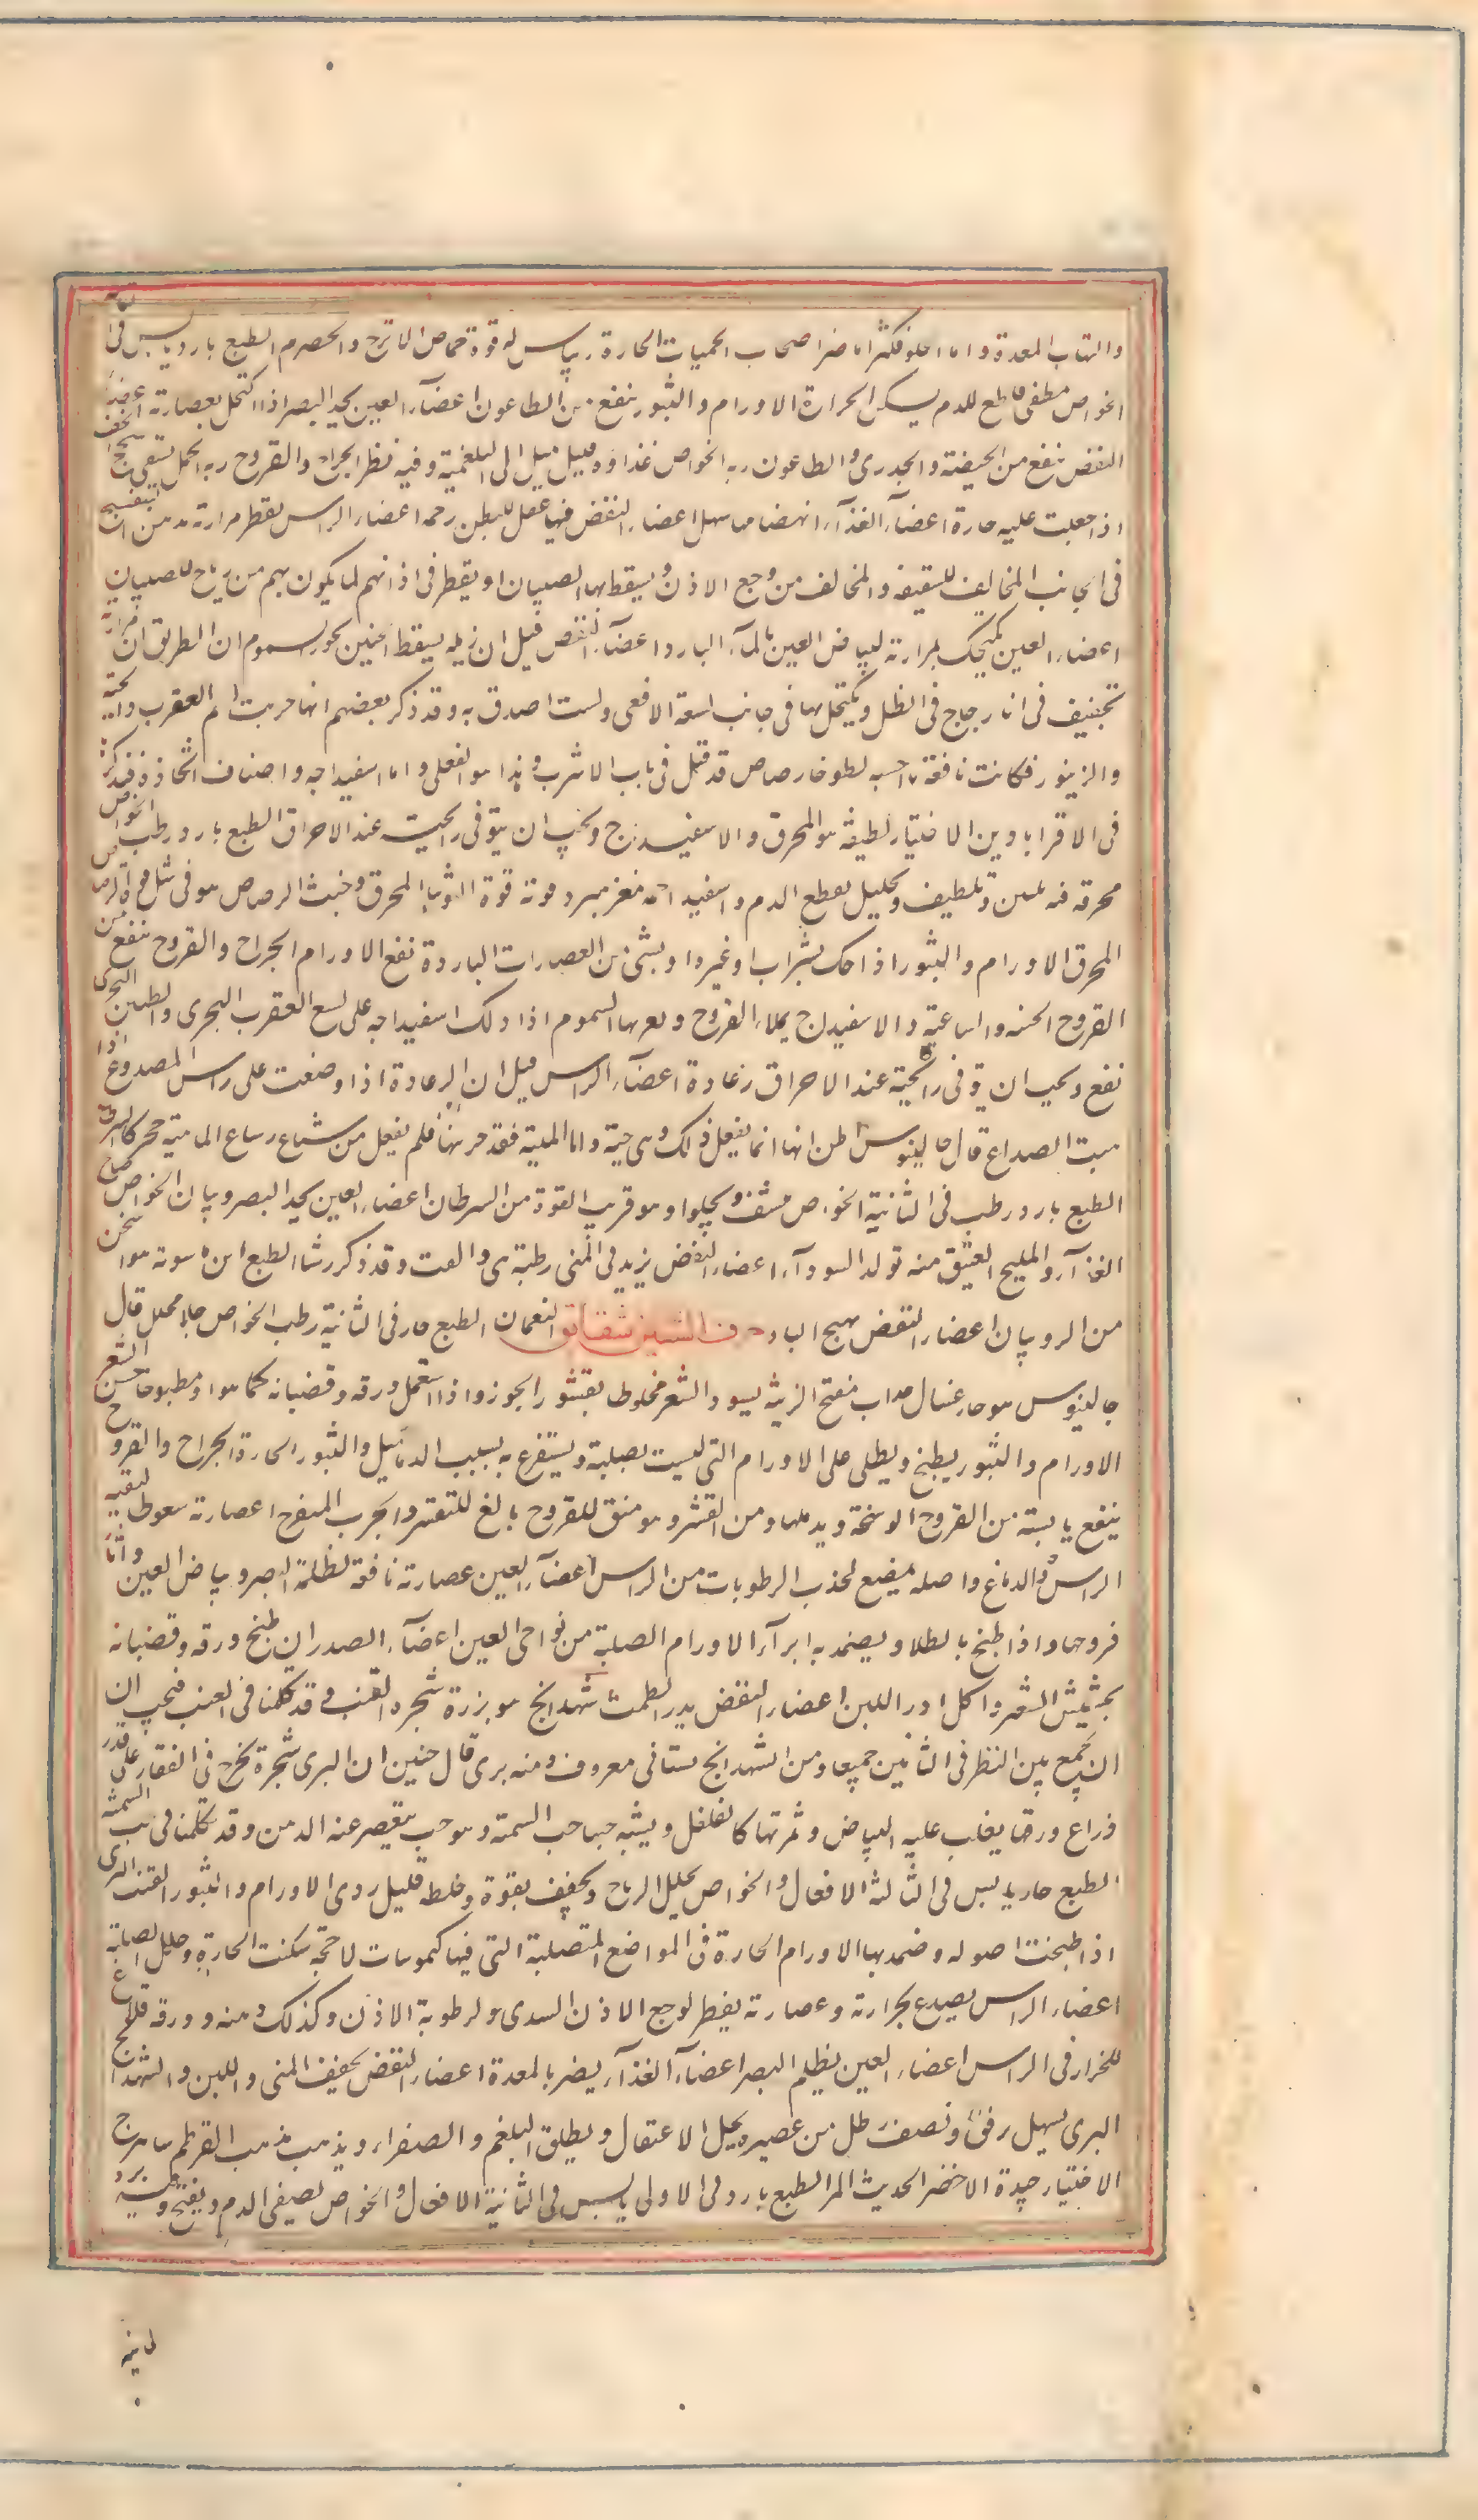 والتهاب المعدة واما الحلو فكثيرا ما ضر اصحاب الحميات الحارة ريباس له قوة حماض الاترج والحصرم الطبع بارد يابس فى الثانية
الخواص مطفى قاطع للدم يسكن الحرارة الاورام والبثور ينفع من الطاعون اعضآء العين يحد البصر اذا اكتحل بعصارته اعضآء
النفض ينفع من الحيضة والجدرى والطاعون رية الخواص غذاؤه قليل يميل الى البلغمية وفيه نظر الجراح والقروح رية الحمل يشفى سحج الخف
اذا جعلت عليه حارة اعضآء الغذآء انهضامها سهل اعضاء النفض فيها عقل للبطن رخمه اعضاء الراس يقطر مرارته بدهن البنفسج
فى الجانب المخالف للشقيقة والمخالف من وجع الاذن ويسعط بها الصبيان او يقطر فى اذانهم لما يكون بهم من رياح الصبيان
اعضاء العين يكتحل بمرارته لبياض العين بالمآء البارد اعضآء النفض قيل ان زبله يسقط الجنين بخورا السموم ان الطريق ان مرارته
تجفيف فى اناء زجاج فى الظل ويكتحل بها فى جانب لسعة الافعى ولست اصدق به وقد ذكر بعضهم انها جربت لسم العقرب والحية
والزنبور فكانت نافعة لطوخا رصاص قد قيل فى باب الاشرب وهذا هو القلعى واما اسفيداجه واصناف اتخاذه فنذكره
فى الاقراباذين الاختيار لطيفه هو المحرق والاسفيداج ويجب ان يتوقى رايحته عند الاحراق الطبع بارد رطب الخواص
محرقه فيه تلطيف وتحليل يقطع الدم واسفيداجه مغر مبرد قوته قوة التوتيا المحرق وخبث الرصاص هو فى مثل قوة الرصاص
المحرق الاورام والبثور اذا حك بشراب او غيره او بشئ من العصارات الباردة نفع الاورام الجراح والقروح ينفع من
القروح الخبيثة والساعية والاسفيداج يملاء القروح السموم اذا دلك اسفيداجه على لسع العقرب البحرى والتنين البحرى
نفع ويجب ان يتوقى رايحته عند الاحراق رعادة اعضآء الراس قيل ان الرعادة اذا وضعت على راس المصدوع
الصداع قال جالينوس اظن انها انما يفعل ذلك وهى حية واما الميتة فقد جربتها فلم يفعل من
الطبع بارد رطب فى الثانية الخواص منشف ويجلوا وهو قريب القوة من السرطان اعضاء العين يحد البصر روبيان الخواص
الغذآء والمليح العتيق منه تولد السودآء اعضاء النفض يزيد فى المنى رطبة هى القت وقد ذكر الطبع
من الروبيان اعضاء النفض يهيج الباه حرف الشين شقايق النعمان الطبع حار فى الثانية رطب الخواص جلاء محلل قال
جالينوس هو حار غسال جذاب مفتح الزينة يسود الشعر مخلوطا بقشور الجوز واذا استعمل ورقه وقضبانه كما هو او مطبوخا حسن الشعر
الاورام والبثور يطبخ ويطلى على الاورام التى ليست بصلبة ويستفرغ به بسبب الدماميل والبثور الحارة الجراح والقروح
ينفع يابسه من القروح الوسخة ويدملها ومن التقشر وهو منق للقروح بالغ للتقشر والجرب المتقرح اعصارته سعوط لتنقية
الراس والدماغ واصله يمضغ لجذب الرطوبات من الراس اعضآء العين عصارته نافعة لظلمة البصر وبياض العين واثار
قروحها واذا طبخ بالطلا ويضمد به ابرآء الاورام الصلبة من نواحى العين اعضآء الصدر ان طبخ ورقه وقضبانه
بحشيش الشعير واكل ادر اللبن اعضاء النفض يدر الطمث شهدانج هو بزر شجرة القنب وقد تكلمنا فى القنب فيجب ان
ان يجمع بين النظر فى الثانين جميعا ومن الشهدانج بستانى معروف ومنه برى قال حنين ان البرى شجرة تخرج فى القفار على قدر
ذراع ورقها يغلب عليه البياض وثمرتها كالفلفل ويشبه حبها حب السمنة وهو حب يعصر عنه الدهن وقد تكلمنا فى حب السمنة
الطبع حار يابس فى الثالثة الافعال والخواص يحلل الرياح ويجفف بقوة وخلطه قليل ردى الاورام والبثور القنب البرى
اذا طبخت اصوله وضمد بها الاورام الحارة فى المواضع المتصلبة التى فيها كيموسات لاحجة سكنت الحارة وحلل الصلبة
اعضاء الراس يصدع بحرارته وعصارته يقطر لوجع الاذن السددى ولرطوبة الاذن وكذلك دهنه وورقه قلاع
للحزاز فى الراس اعضاء العين يظلم البصر اعضآء الغذآء يضر بالمعدة اعضاء النفض يجفف المنى واللبن والشهدانج
البرى يسهل برفق ونصف رطل من عصيره يحل الاعتقال ويطلق البلغم والصفراء ويذهب مذهب القرطم شاهترج
الاختيار جيده الاخضر الحديث المر الطبع بارد فى الاولى يابس فى الثانية الافعال والخواص يصفى الدم ويفتح